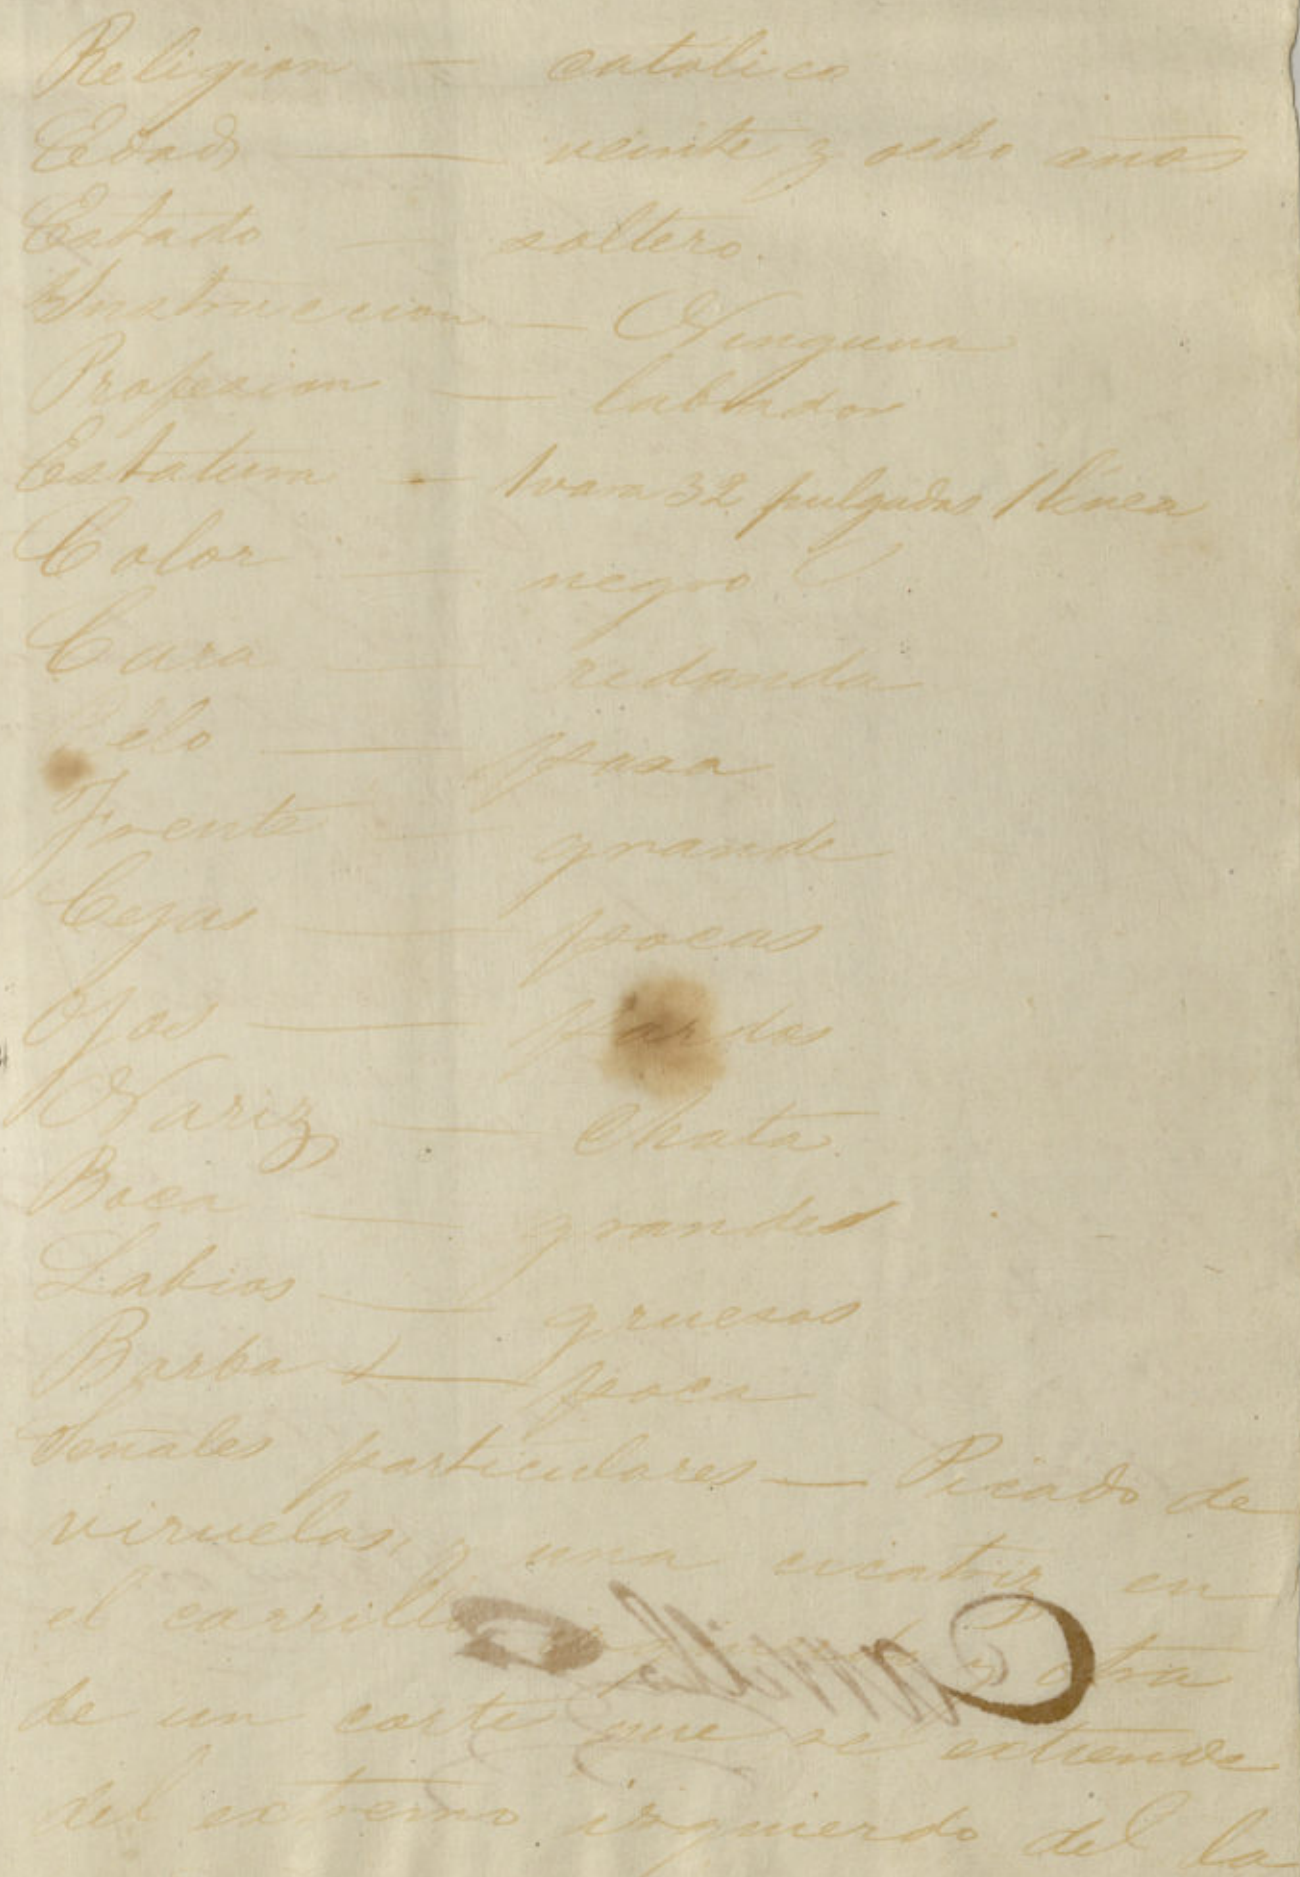 Religion — catolico
Edad — veinte y ocho años
Estado — soltero.
Instruccion — Ninguna
Profesion — labrador
Estatura — 1 vara 32 pulgadas 1 linea
Color — negro
Cara — redonda
Pelo — pasa
Frente — grande
Cejas — pocas
Ojos — pardos
Nariz — Chata
Boca — grande
Labios — gruesos
Barba — poca
Señales particulares — Picado de
viruelas, y una cicatriz en
el carrillo y otra
de un corte que se extiende
del extremo izquierdo del la
Carrillo